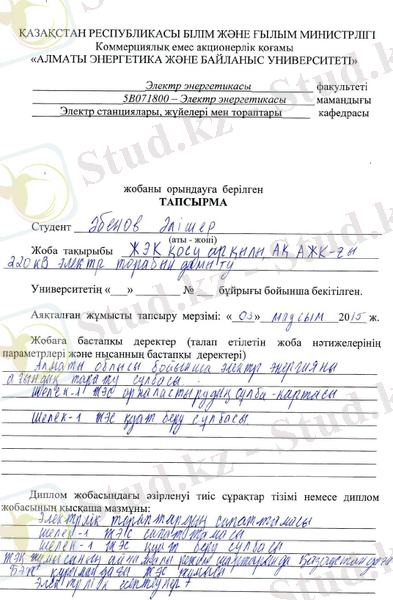 ҚАЗАҚСТАН РЕСПУБЛИКАСЫ БІЛІМ ЖӘНЕ ҒЫЛЫМ МИНИСТРЛІГІ
Коммерциялық емес акционерлік қоғамы
«АЛМАТЫ ЭНЕРГЕТИКА ЖӘНЕ БАЙЛАНЫС УНИВЕРСИТЕТІ»
Электр энергетикасы факультеті
5В071800 – Электр энергетикасы мамандығы
Электр станциялары, жүйелері мен тораптары кафедрасы
жобаны орындауға берілген
ТАПСЫРМА
Студент Әбенов Әлішер
(аты - жөні)
Жоба тақырыбы ЖЭК қосу арқылы АҚ АЖК-ғы
220 кВ электр торабын дамыту
Университетің «__» ______ № __ бұйрығы бойынша бекітілген.
Аяқталған жұмысты тапсыру мерзімі: «03» маусым 2015 ж.
Жобаға бастапқы деректер (талап етілетін жоба нәтижелерінің
параметрлері және нысанның бастапқы деректері)
Алматы облысы бойынша электр энергияны
ағындық тарату сұлбасы
Шелек-1 ЖЭС орналастырудың сұлба-картасы
Шелек-1 ЖЭС қуат беру сұлбасы
Диплом жобасындағы әзірленуі тиіс сұрақтар тізімі немесе диплом
жобасының қысқаша мазмұны:
Электрлік тораптардың сипаттамасы
Шелек-1 ЖЭС сипаттамасы
Шелек-1 ЖЭС қуат беру сұлбасы
ЖЭК Қазақстандағы
БЭЖ құрамындағы ЖЭС жұмысы
Электрлік есептеулер
Stud.kz - Stud.kz